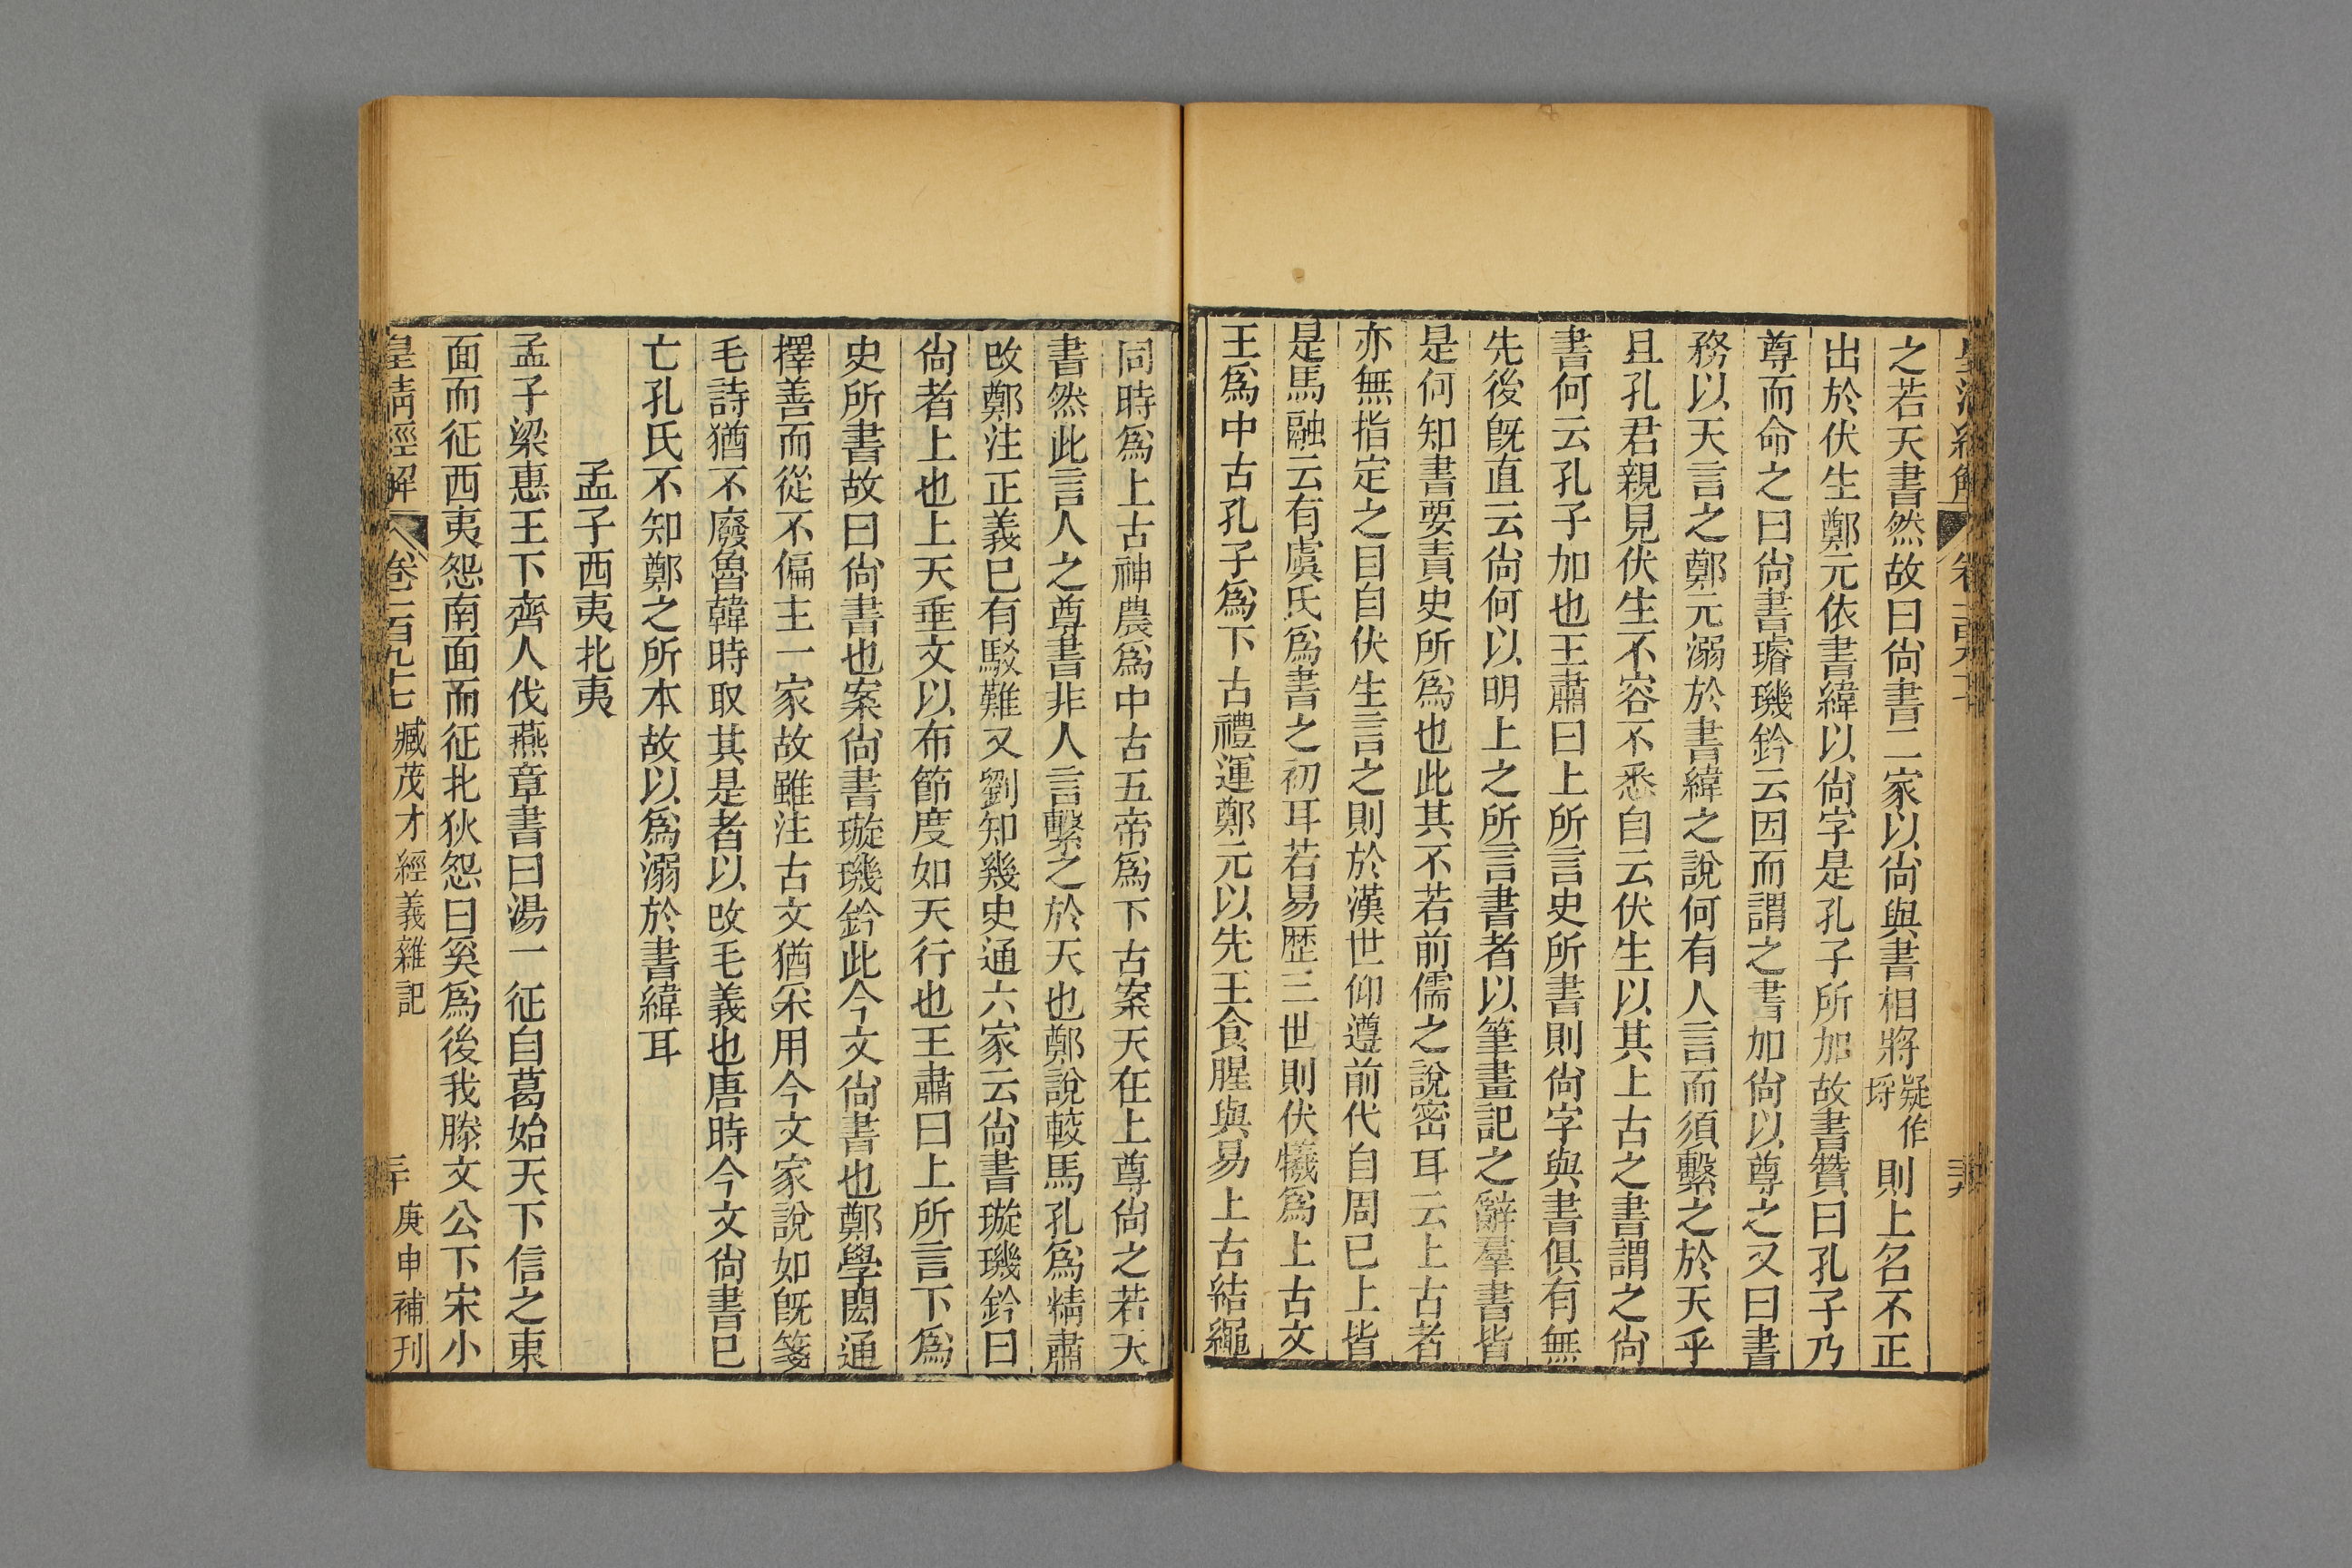 之若天書然故曰尙書二家以尙與書相將疑作埒則上名不正
出於伏生鄭元依書緯以尙字是孔子所加故書贊曰孔子乃
尊而命之曰尙書璿璣鈐云因而謂之書加尙以尊之又曰書
務以天言之鄭元溺於書緯之說何有人言而須繫之於天乎
且孔君親見伏生不容不悉自云伏生以其上古之書謂之尙
書何云孔子加也王肅曰上所言史所書則尙字與書俱有無
先後旣直云尙何以明上之所言書者以筆畫記之辭羣書皆
是何知書要責史所爲也此其不若前儒之說密耳云上古者
亦無指定之目自伏生言之則於漢世仰遵前代自周已上皆
是馬融云有虞氏爲書之初耳若易歷三世則伏犧爲上古文
王爲中古孔子爲下古禮運鄭元以先王食腥與易上古結繩
同時爲上古神農爲中古五帝爲下古案天在上尊尙之若天
書然此言人之尊書非人言繫之於天也鄭說較馬孔爲精肅
改鄭注正義已有駁難又劉知幾史通六家云尙書璇璣鈐曰
尙者上也上天垂文以布節度如天行也王肅曰上所言下爲
史所書故曰尙書也案尙書璇璣鈐此今文尙書也鄭學閎通
擇善而從不偏主一家故雖注古文猶釆用今文家說如旣箋
毛詩猶不廢魯韓時取其是者以改毛義也唐時今文尙書已
亡孔氏不知鄭之所本故以爲溺於書緯耳
孟子西夷北夷
孟子梁惠王下齊人伐燕章書曰湯一征自葛始天下信之東
面而征西夷怨南面而征北狄怨曰奚爲後我滕文公下宋小
皇清經解 卷二百九十七 臧茂才經義雜記 三十 庚申補刊